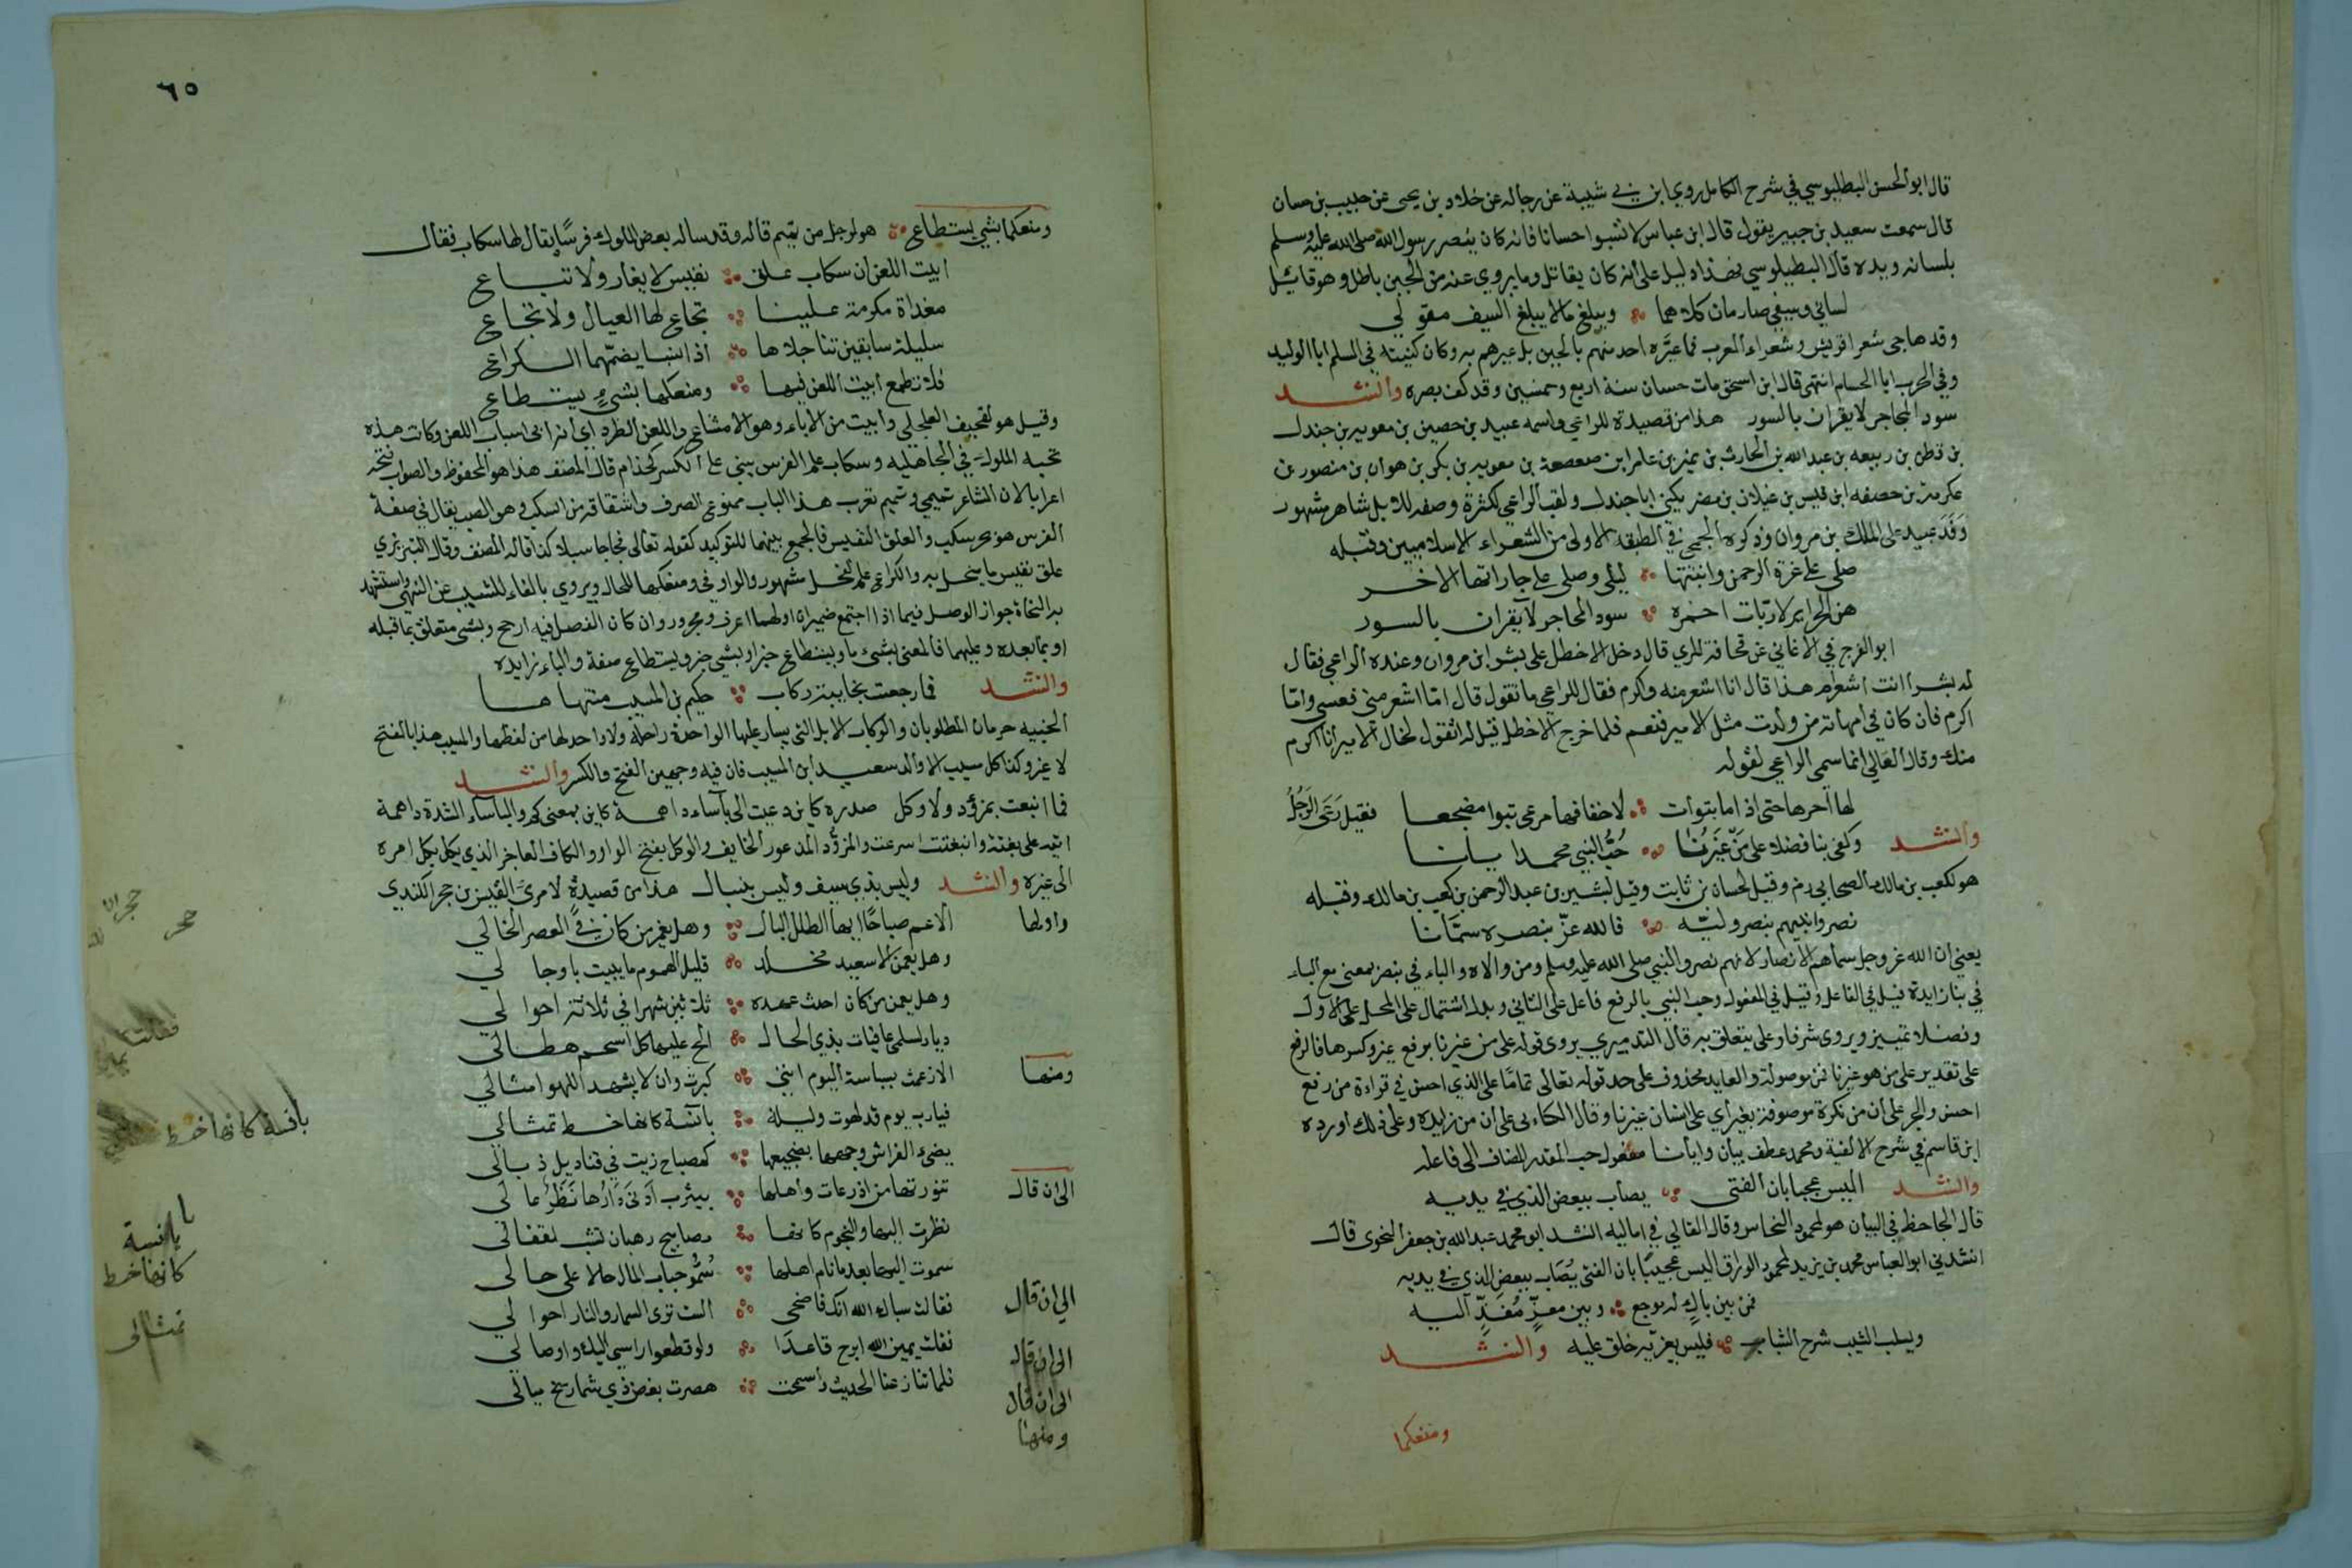 قال ابو الحسن البطليوسي في شرح الكامل روي ابن ابي شيبة عن رجاله عن خلاد بن يحيى عن حبيب بن حسان
قال سمعت سعيد بن جبير يقول قال ابن عباس لا تسبوا حسانا فانه كان ينصر رسول الله صلى الله عليه وسلم
بلسانه ويده قال البطيلوسي فهذا دليل على انه كان يقاتل وما يروي عنه من الجبن باطل وهو قائل
لساني وسيفي صارمان كلاهما ويبلغ ما لا يبلغ السيف مقولي
وقد هاجى شعرا قريش وشعراء العرب فما عيره احد منهم بالجبن بل عيرهم به وكان كنيته في السلم ابا الوليد
وفي الحرب ابا الحسام انتهى قال ابن اسحق مات حسان سنة اربع وخمسين وقد كف بصره وانشد
سود المحاجر لا يقران بالسور هذا من قصيدة للراعي واسمه عبيد بن حصين بن معوية بن جندل
بن قطن بن ربيعه بن عبد الله بن الحارث بن نمير بن عامر ابن صعصعة بن معوية بن بكر بن هوازن بن منصور بن
عكرمة بن حصفه ابن قيس بن غيلان بن مضر يكنى ابا جندل ولقب الراعي لكثرة وصفه للابل شاهر مشهور
وفد عبيد على الملك بن مروان وذكره الجمحي في الطبقة الاولى من الشعراء الاسلاميين وقبله
صلى على عزة الرحمن وابنتها ليلى وصلى على جاراتها الاخر
هن الحراير لا ربات احمرة سود المحاجر لا يقران بالسور
ابو الفرج في الاغاني عن قحافة المري قال دخل الاخطل على بشر ابن مروان وعنده الراعي فقال
له بشر أانت اشعر ام هذا قال انا اشعر منه واكرم فقال للراعي ما تقول قال اما اشعر مني فعسى واما
اكرم فان كان في امهاته من ولدت مثل الامير فنعم فلما خرج الاخطل قيل له اتقول لخال الامير انا اكرم
منك وقال القالي انما سمي الراعي لقوله
لها امرها حتى اذا ما تبوأت لاخفافها مرعى تبوا مضجعا فقيل رعى الرجل
وانشد وكفى بنا فضلا على من غيرنا حب النبي محمد ايانا
هو لكعب بن مالك الصحابي رضه وقيل لحسان بن ثابت وقيل لبشير بن عبد الرحمن بن كعب بن مالك وقبله
نصروا نبيهم بنصر وليه فالله عز بنصره سمانا
يعني ان الله عز وجل سماهم الانصار لانهم نصروا النبي صلى الله عليه وسلم ومن والاه والباء في بنصر بمعنى مع الباء
في بنا زايدة قيل في الفاعل وقيل في المفعول وحب النبي بالرفع فاعل على الثاني وبدل اشتمال على المحل على الاول
وفضلا تمييز ويروى شرفا وعلى يتعلق به قال التدميري يروى قوله على من غيرنا برفع غير وكسرها فالرفع
على تقدير على من هو غيرنا فمن موصولة والعايد محذوف على حد قوله تعالى تماما على الذي احسن في قراءة من رفع
احسن والجر على ان من نكرة موصوفة بغير أي على انسان غيرنا وقال الكساءي على ان من زايده وعلى ذلك اورده
ابن قاسم في شرح الالفية ومحمد عطف بيان وايانا مفعول حب المقدر المضاف الى فاعله
وانشد اليس عجيبا بان الفتى يصاب ببعض الذي في يديه
قال الجاحظ في البيان هو لمحمود النحاس وقال القالي في اماليه انشد ابو محمد عبد الله بن جعفر النحوى قال
انشدني ابو العباس محمد بن يزيد لمحمود الوراق اليس عجيبا بان الفتى يصاب ببعض الذي في يديه
فمن بين باك له موجع وبين معز مغذ اليه
ويسلب الشيب شرح الشباب فليس يعزيه خلق عليه وانشد
ومنعكما
٦٥
ومنعكها بشي يستطاع هو لرجل من تميم قاله وقد ساله بعض الملوك فرسا يقال لها سكاب فقال
ابيت اللعن ان سكاب علق نفيس لا يعار ولا تباع
مفداة مكرمة علينا تجاع لها العيال ولا تجاع
سليلة سابقين تناجلاها اذا نسبا يضمهما الكراع
فلا تطمع ابيت اللعن فيها ومنعكها بشيء يستطاع
وقيل هو لقحيف العجلي وابيت من الاباء وهو الامتناع واللعن الطرد اي انه ابى اسباب اللعن وكانت هذه
تحية الملوك في الجاهلية وسكاب علم الفرس يبنى على الكسر كحذام قال المصنف هذا هو المحفوظ والصواب فتحه
اعرابا لان الشاعر تميمي وتميم تعرب هذا الباب ممنوع الصرف واشتقاقه من السكب وهو الصب يقال في صفة
الفرس هو بحر سكب والعلق النفيس فالجمع بينهما للتوكيد كقوله تعالى فجاجا سبلا كذا قاله المصنف وقال التبريزي
علق نفيس ما يبخل به والكراع علم لفحل مشهور والواو في ومنعكها للحال ويروي بالفاء للتسبب عن النهي واستشهد
به النحاة جواز الوصل فيما اذا اجتمع ضميران اولهما اعرف ومجرور وان كان الفصل فيه ارجح وبشي متعلق بما قبله
او بما بعده وعليهما فالمعنى بشيء ما ويستطاع خبر او بشي خبر ويستطاع صفة والباء زايده
وانشد فما رجعت بخايبة ركاب حكيم بن المسيب منتهاها
الخيبه حرمان المطلوب والركاب الابل التي يسار عليها الواحدة راحلة ولا واحد لها من لفظها والمسيب هذا بالفتح
لا غير وكذا كل مسيب الا والد سعيد ابن المسيب فان فيه وجهين الفتح والكسر وانشد
فما انبعثت بمزؤد ولا وكل صدره كاين دعيت الى بأساء داهمة كاين بمعنى كم والبأساء الشدة داهمة
اتيه على بغتة وانبعثت اسرعت والمزؤد المذعور الخايف والوكل بفتح الواو والكاف العاجز الذي يكل امره
الى غيره وانشد وليس بذي سيف وليس بنبال هذا من قصيدة لامرئ القيس بن حجر الكندي
واولها الا عم صباحا ايها الطلل البال وهل يعمن من كان في العصر الخالي
وهل يعمن الا سعيد مخلد قليل الهموم ما يبيت باوجالي
وهل يعمن من كان احدث عهده ثلثين شهرا في ثلاثة احوالي
ديار لسلمى عافيات بذي الخال الح عليها كل اسحم هطالي
ومنها الا زعمت بسباسة اليوم انني كبرت وان لا يشهد اللهو امثالي
فيا رب يوم قد لهوت وليلة بانسة كانها خط تمثالي
يضيء الفراش وجهها لضجيعها كمصباح زيت في قناديل ذبالي
الى ان قال تنورتها من اذرعات واهلها بيثرب ادنى دارها نظر عالي
نظرت اليها والنجوم كانها مصابيح رهبان تشب لقفالي
سموت اليها بعد ما نام اهلها سمو حباب الما حالا على حالي
الى ان قال فقالت سباك الله انك فاضحي الست ترى السمار والناس احوالي
الى ان قال فقلت يمين الله ابرح قاعدا ولو قطعوا راسي لديك واوصالي
الى ان قال فلما تنازعنا الحديث واسمحت هصرت بغصن ذي شماريخ ميالي
ومنها
حجر
فقالت
بانسة كانها خط
بانسة
كانها خط
تمثالى